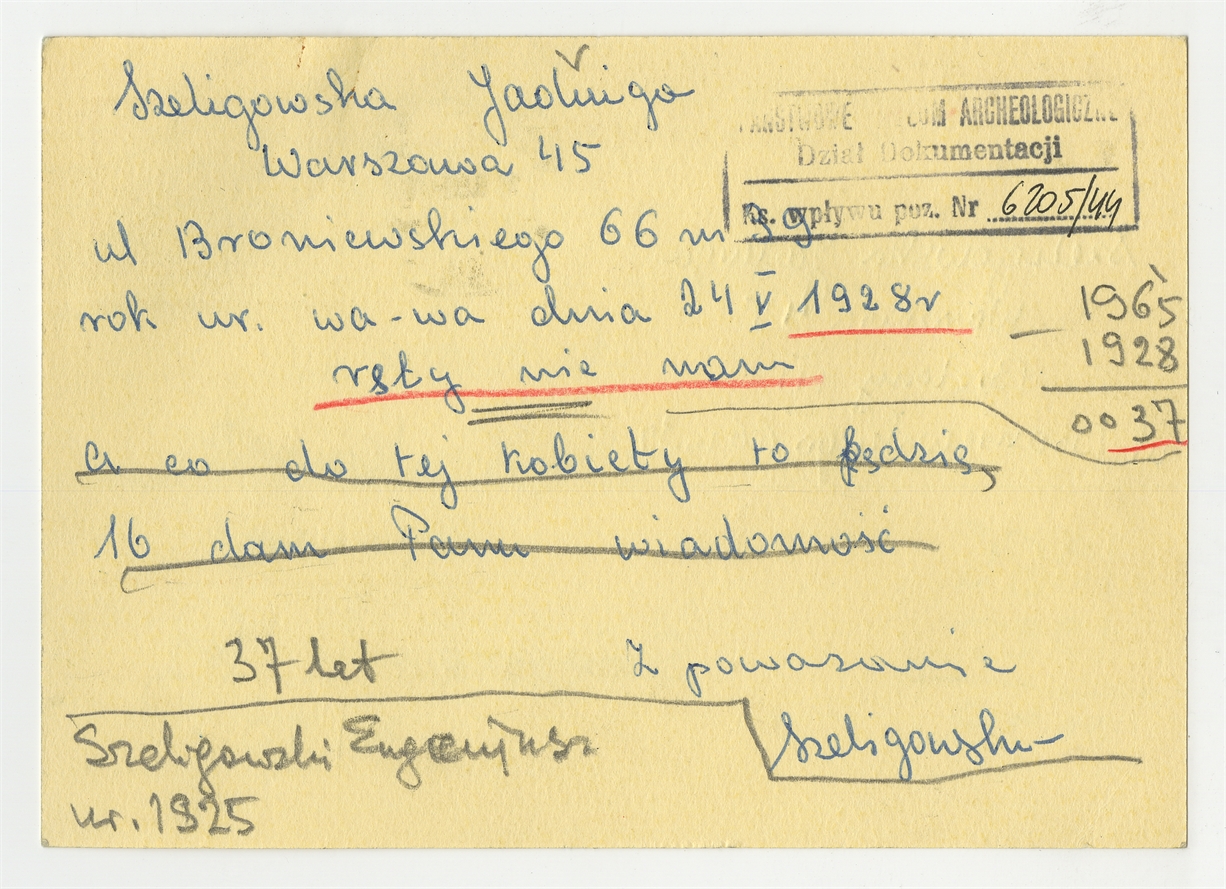 Szeligowska Jadwiga
Warszawa 45
PAŃSTWOWE MUZEUM ARCHEOLOGICZNE
Dział Dokumentacji
Ks. wpływu poz. Nr 6205/44
ul Broniewskiego 66 m 39
rok ur. wa-wa dnia 24 V 1928r
1965
1928
0037
ręty nie mam
a co do tej kobiety to będzię,
16 dam Panu wiadomość
37 let
Z powazanie
Szeligowska
Szeligowski Eugeniusz
ur. 1925